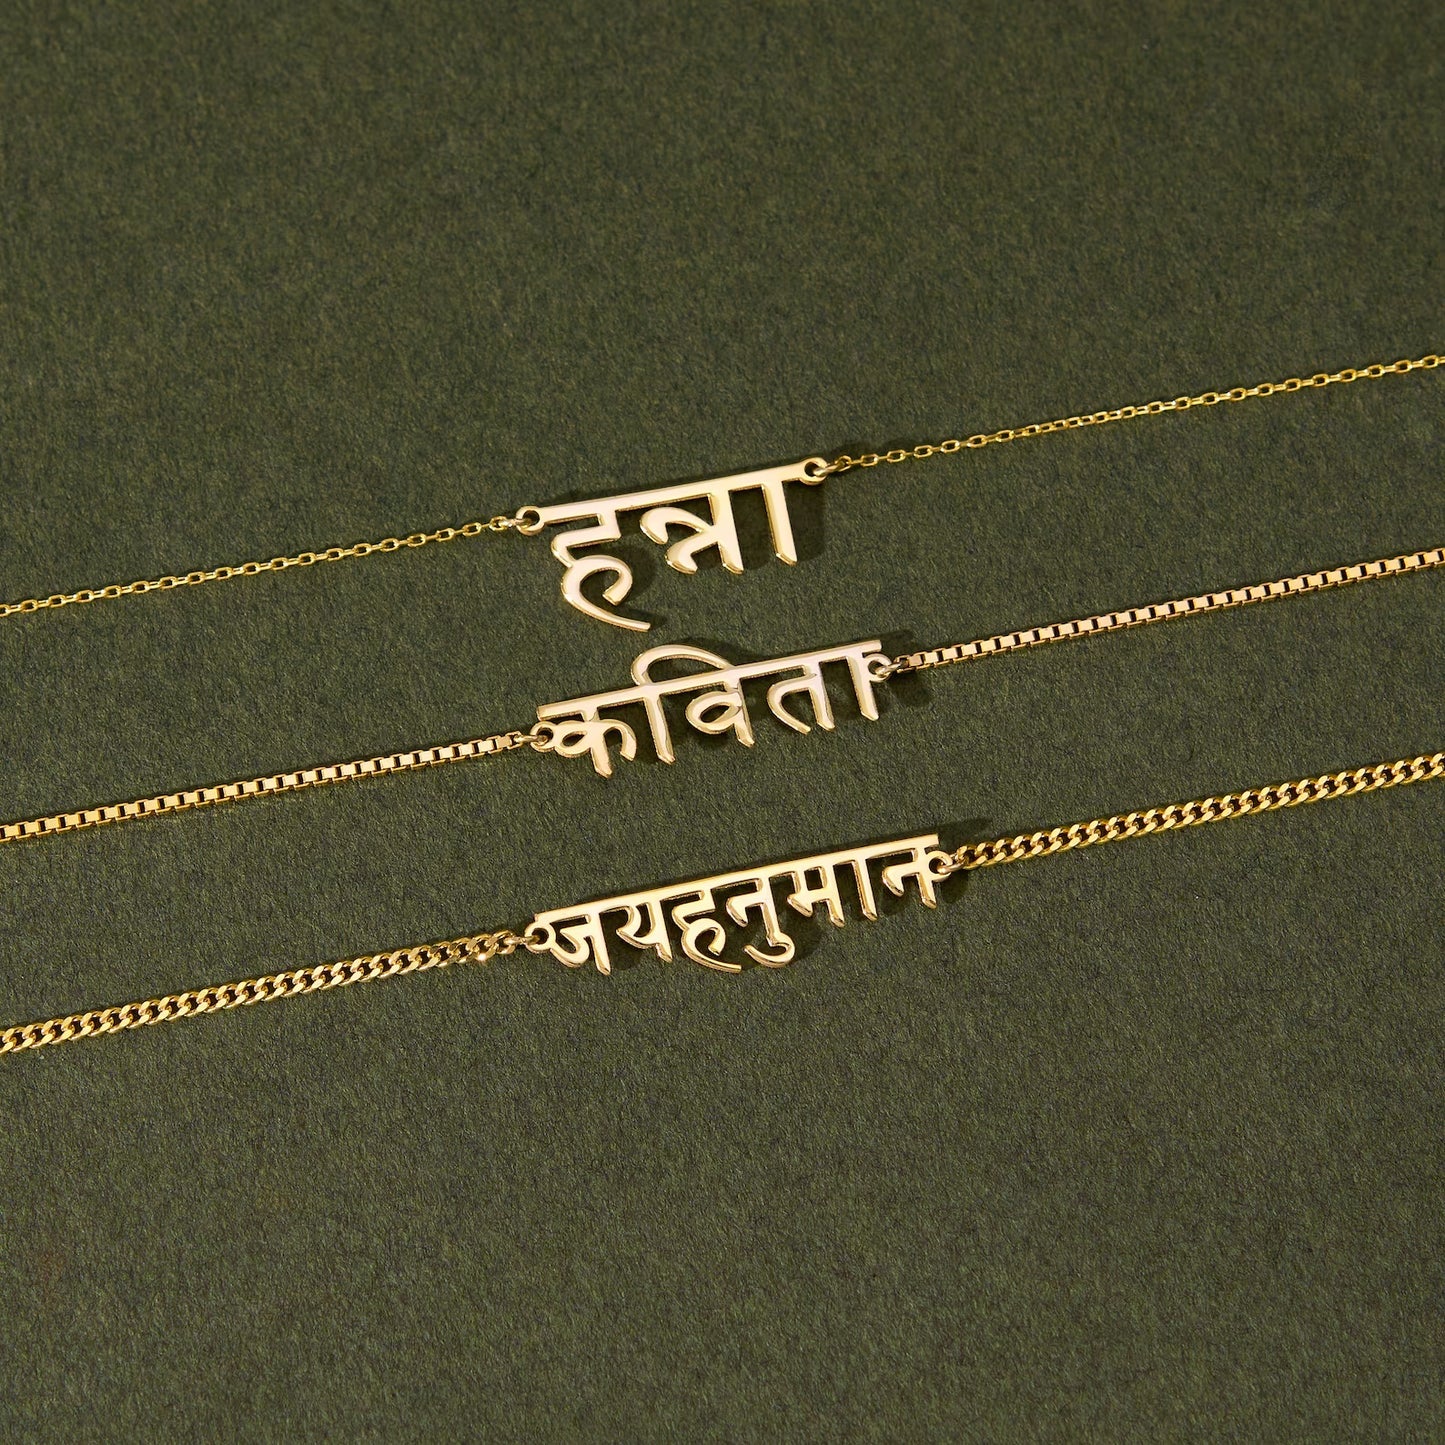 हन्ना
कविता
जयहनुमान